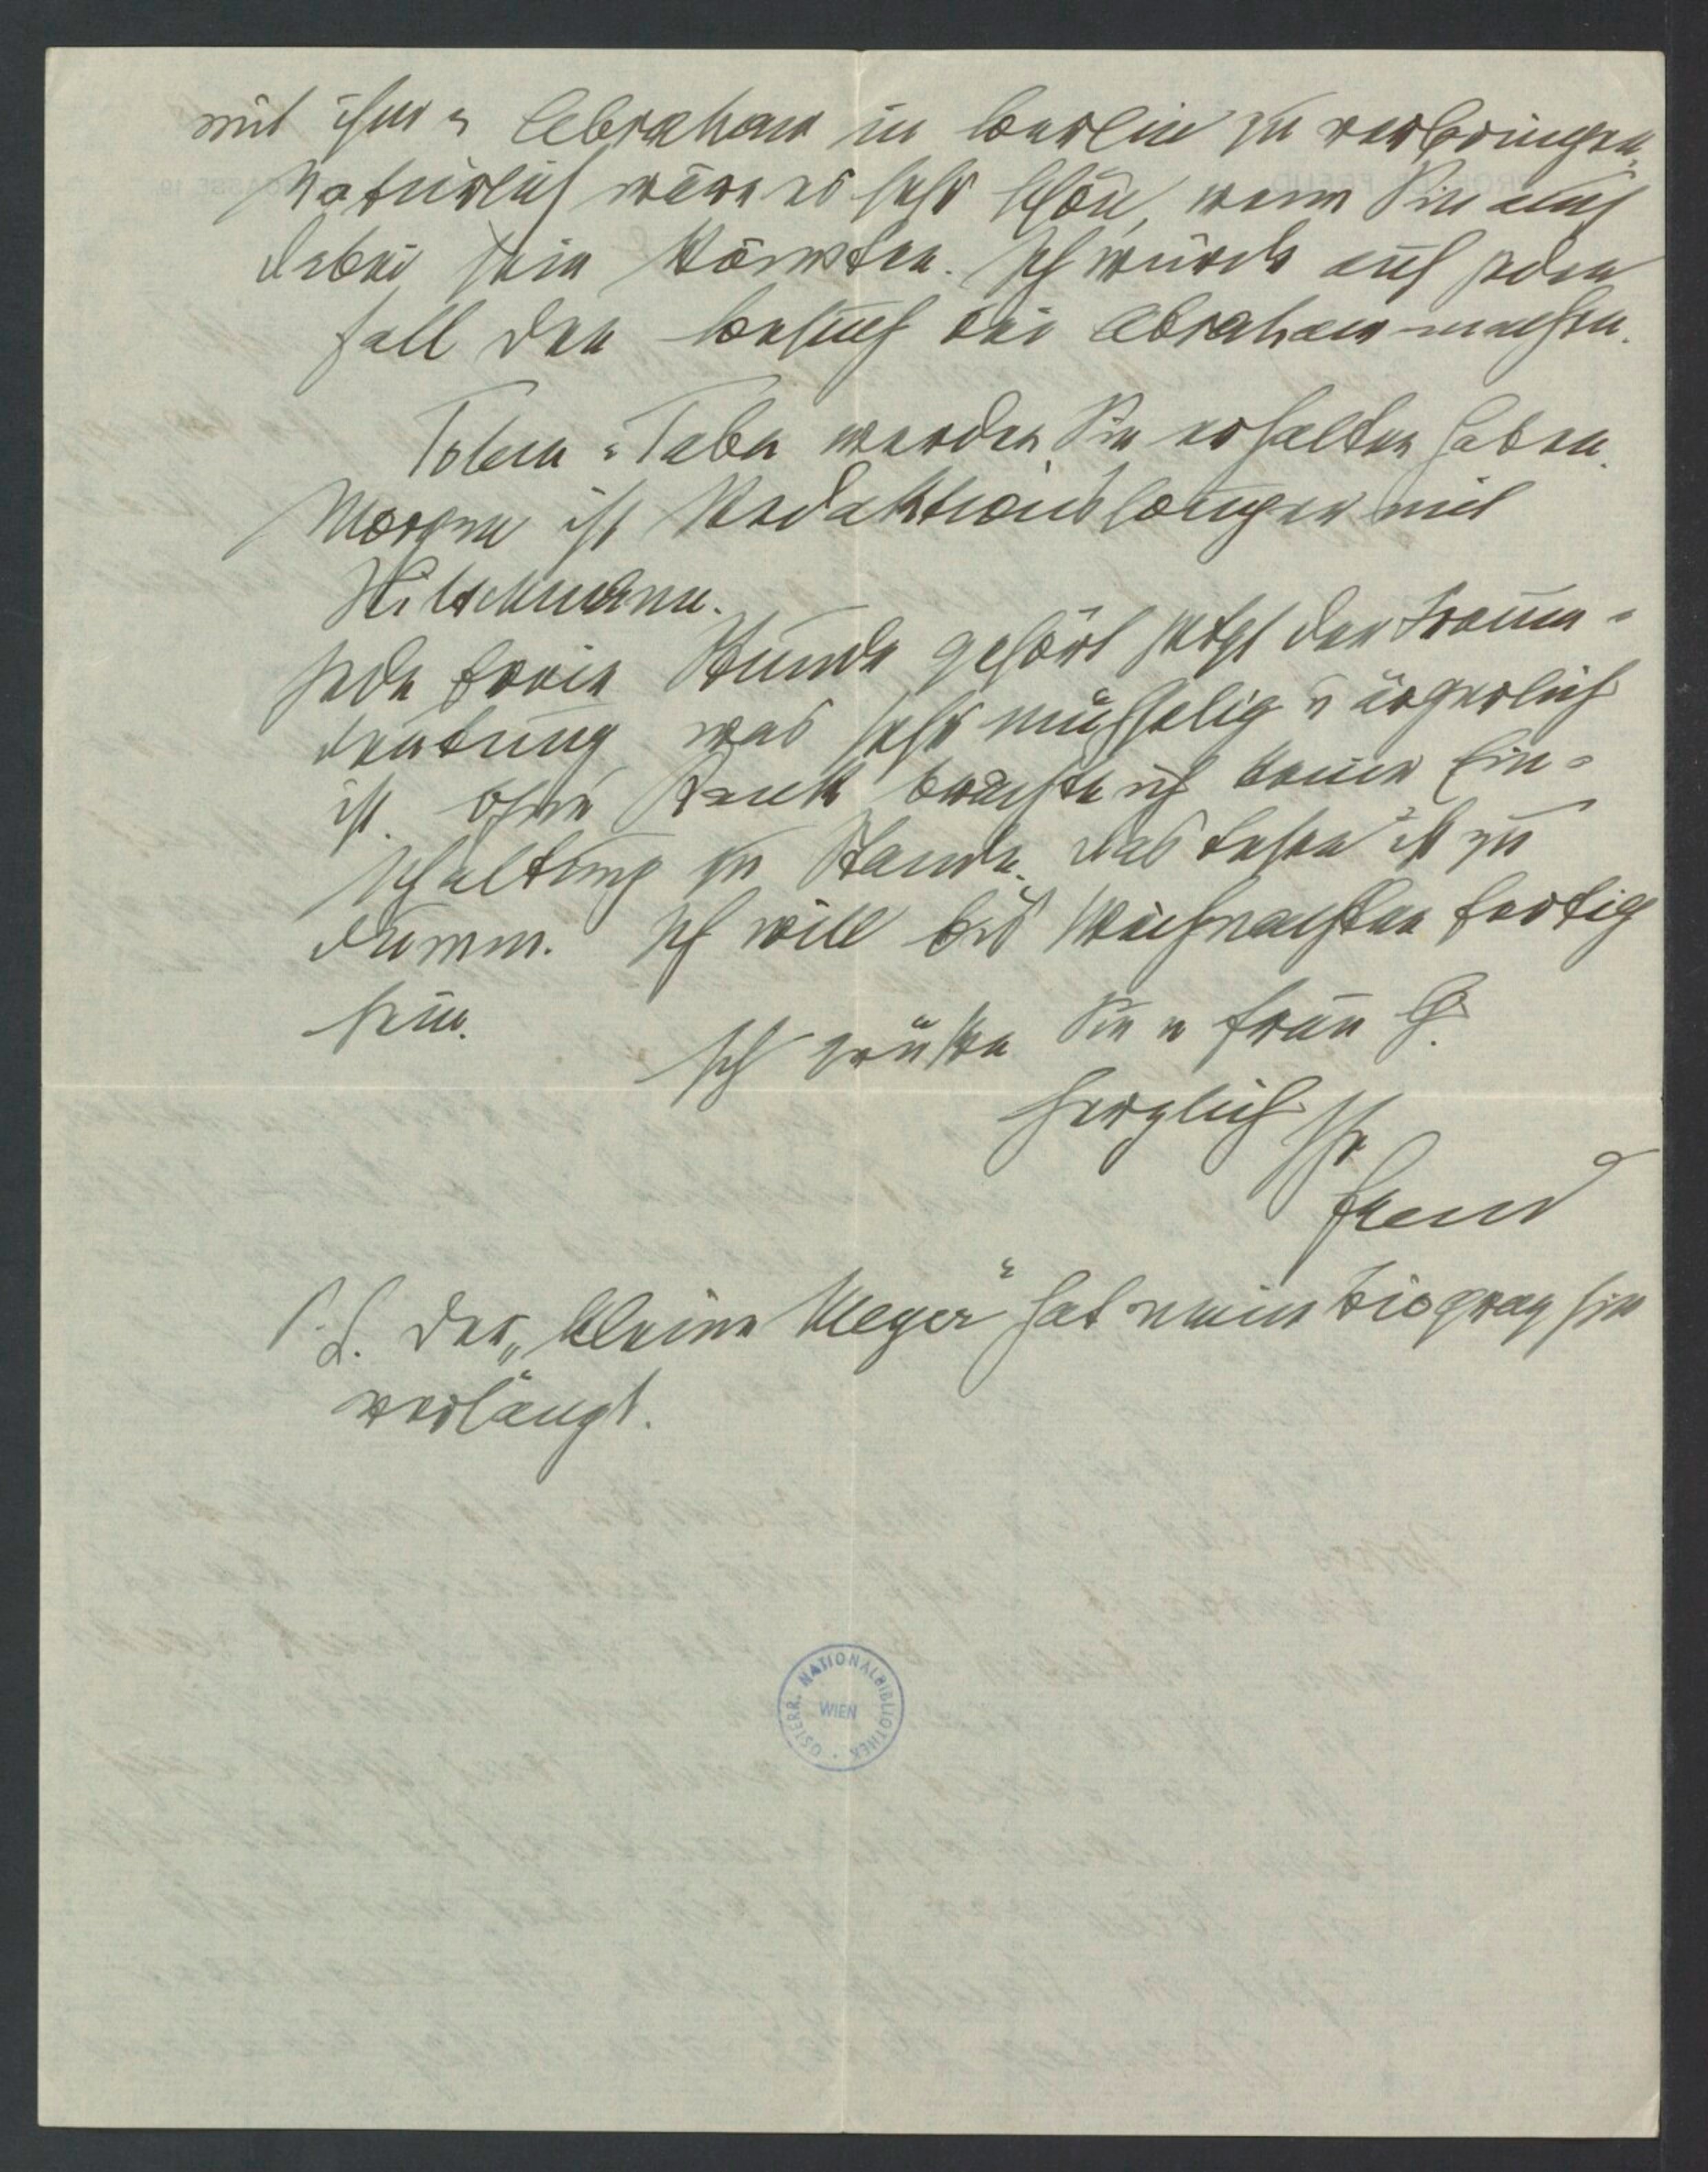 mit ihm u Abraham in Berlin zu verbringen.
Natürlich wäre es sehr schön, wenn Sie auch
dabei sein könnten. Ich würde auf jeden
Fall den Besuch bei Abraham machen.
Totem u Tabu werden Sie erhalten haben.
Morgen ist Redaktions mit
Hitschmann.
Jede freie Stunde gehört jetzt der Traum-
deutung was sehr mühselig u ärgerlich
ist. Ohne Rank brächte ich keine Ein-
schaltung zu Stande. Das ist zu
dumm. Ich will bis Weihnachten fertig
sein.
Ich grüße Sie u Frau G.
herzlich Ihr
Freud
P.S. Der „kleine Meyer“ hat meine Biographie
verlangt.
ÖSTERR. NATIONALBIBLIOTHEK
WIEN